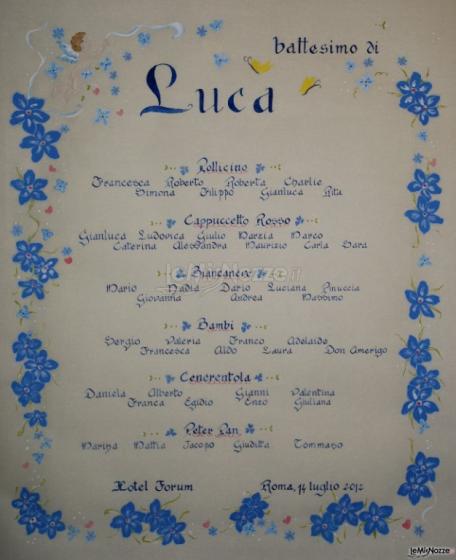 battesimo di
Luca
Pollicino
Francesca Roberto Roberta Charlie
Simona Filippo Gianluca Rita
Cappuccetto Rosso
Gianluca Ludovica Giulio Marzia Marco
Caterina Alessandra Maurizio Carla Sara
Biancaneve
Mario Nadia Dario Luciana Pinuccia
Giovanna Andrea Massimo
Bambi
Sergio Valeria Franco Adelaide
Francesca Aldo Laura Don Amerigo
Cenerentola
Daniela Alberto Gianni Valentina
Franca Egidio Enzo Giuliana
Peter Pan
Marina Mattia Jacopo Giuditta Tommaso
Hotel Forum Roma, 14 luglio 2012
leMieNozze